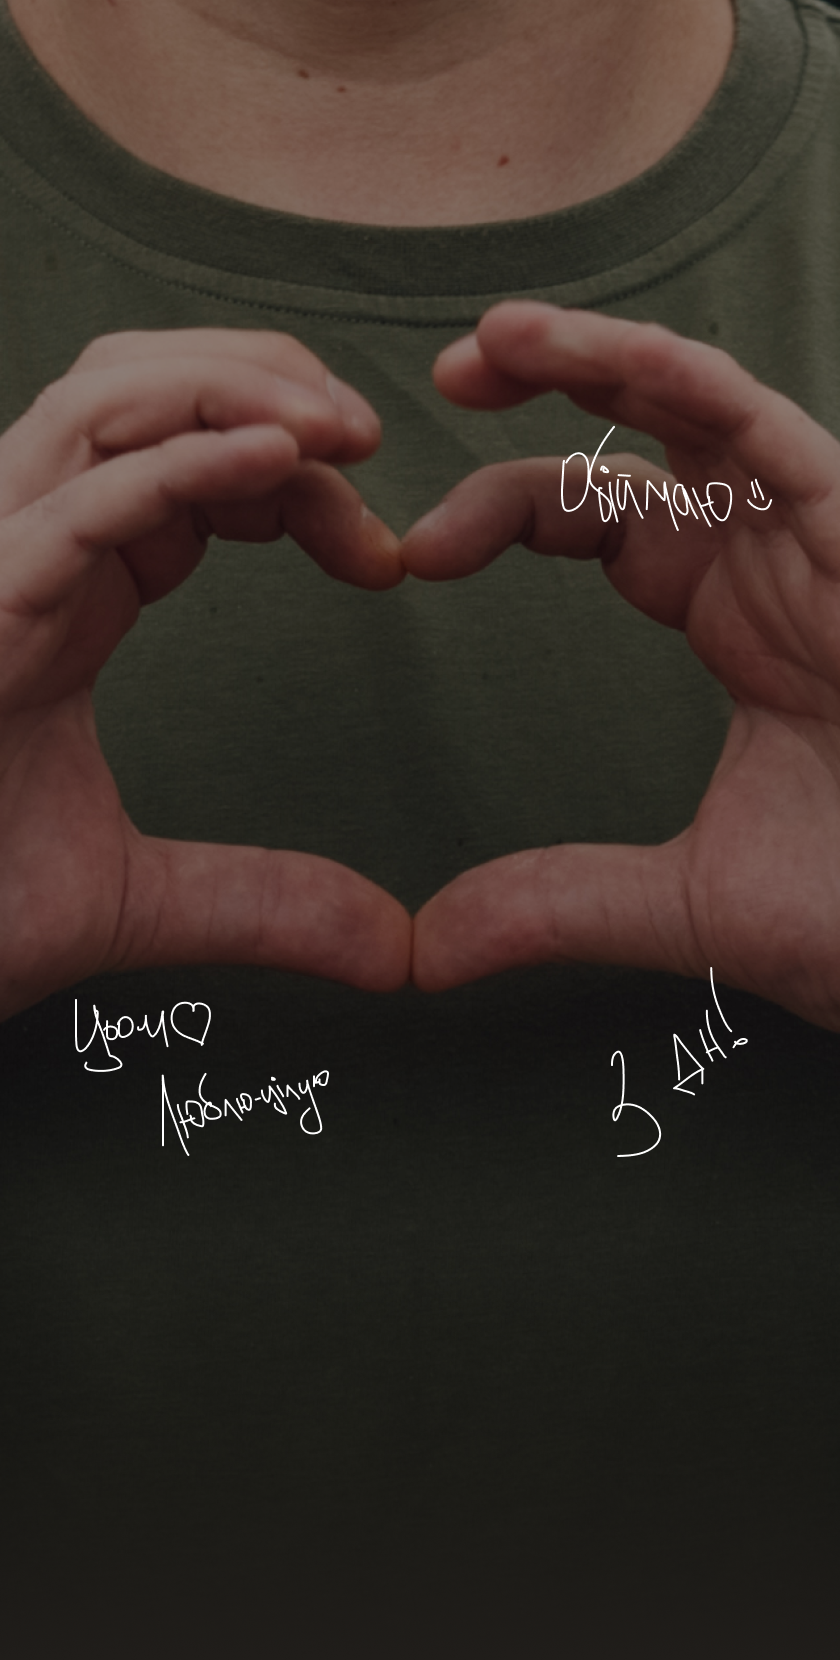 Обіймаю
Цьом♡
Люблю-цілую
З ДН!